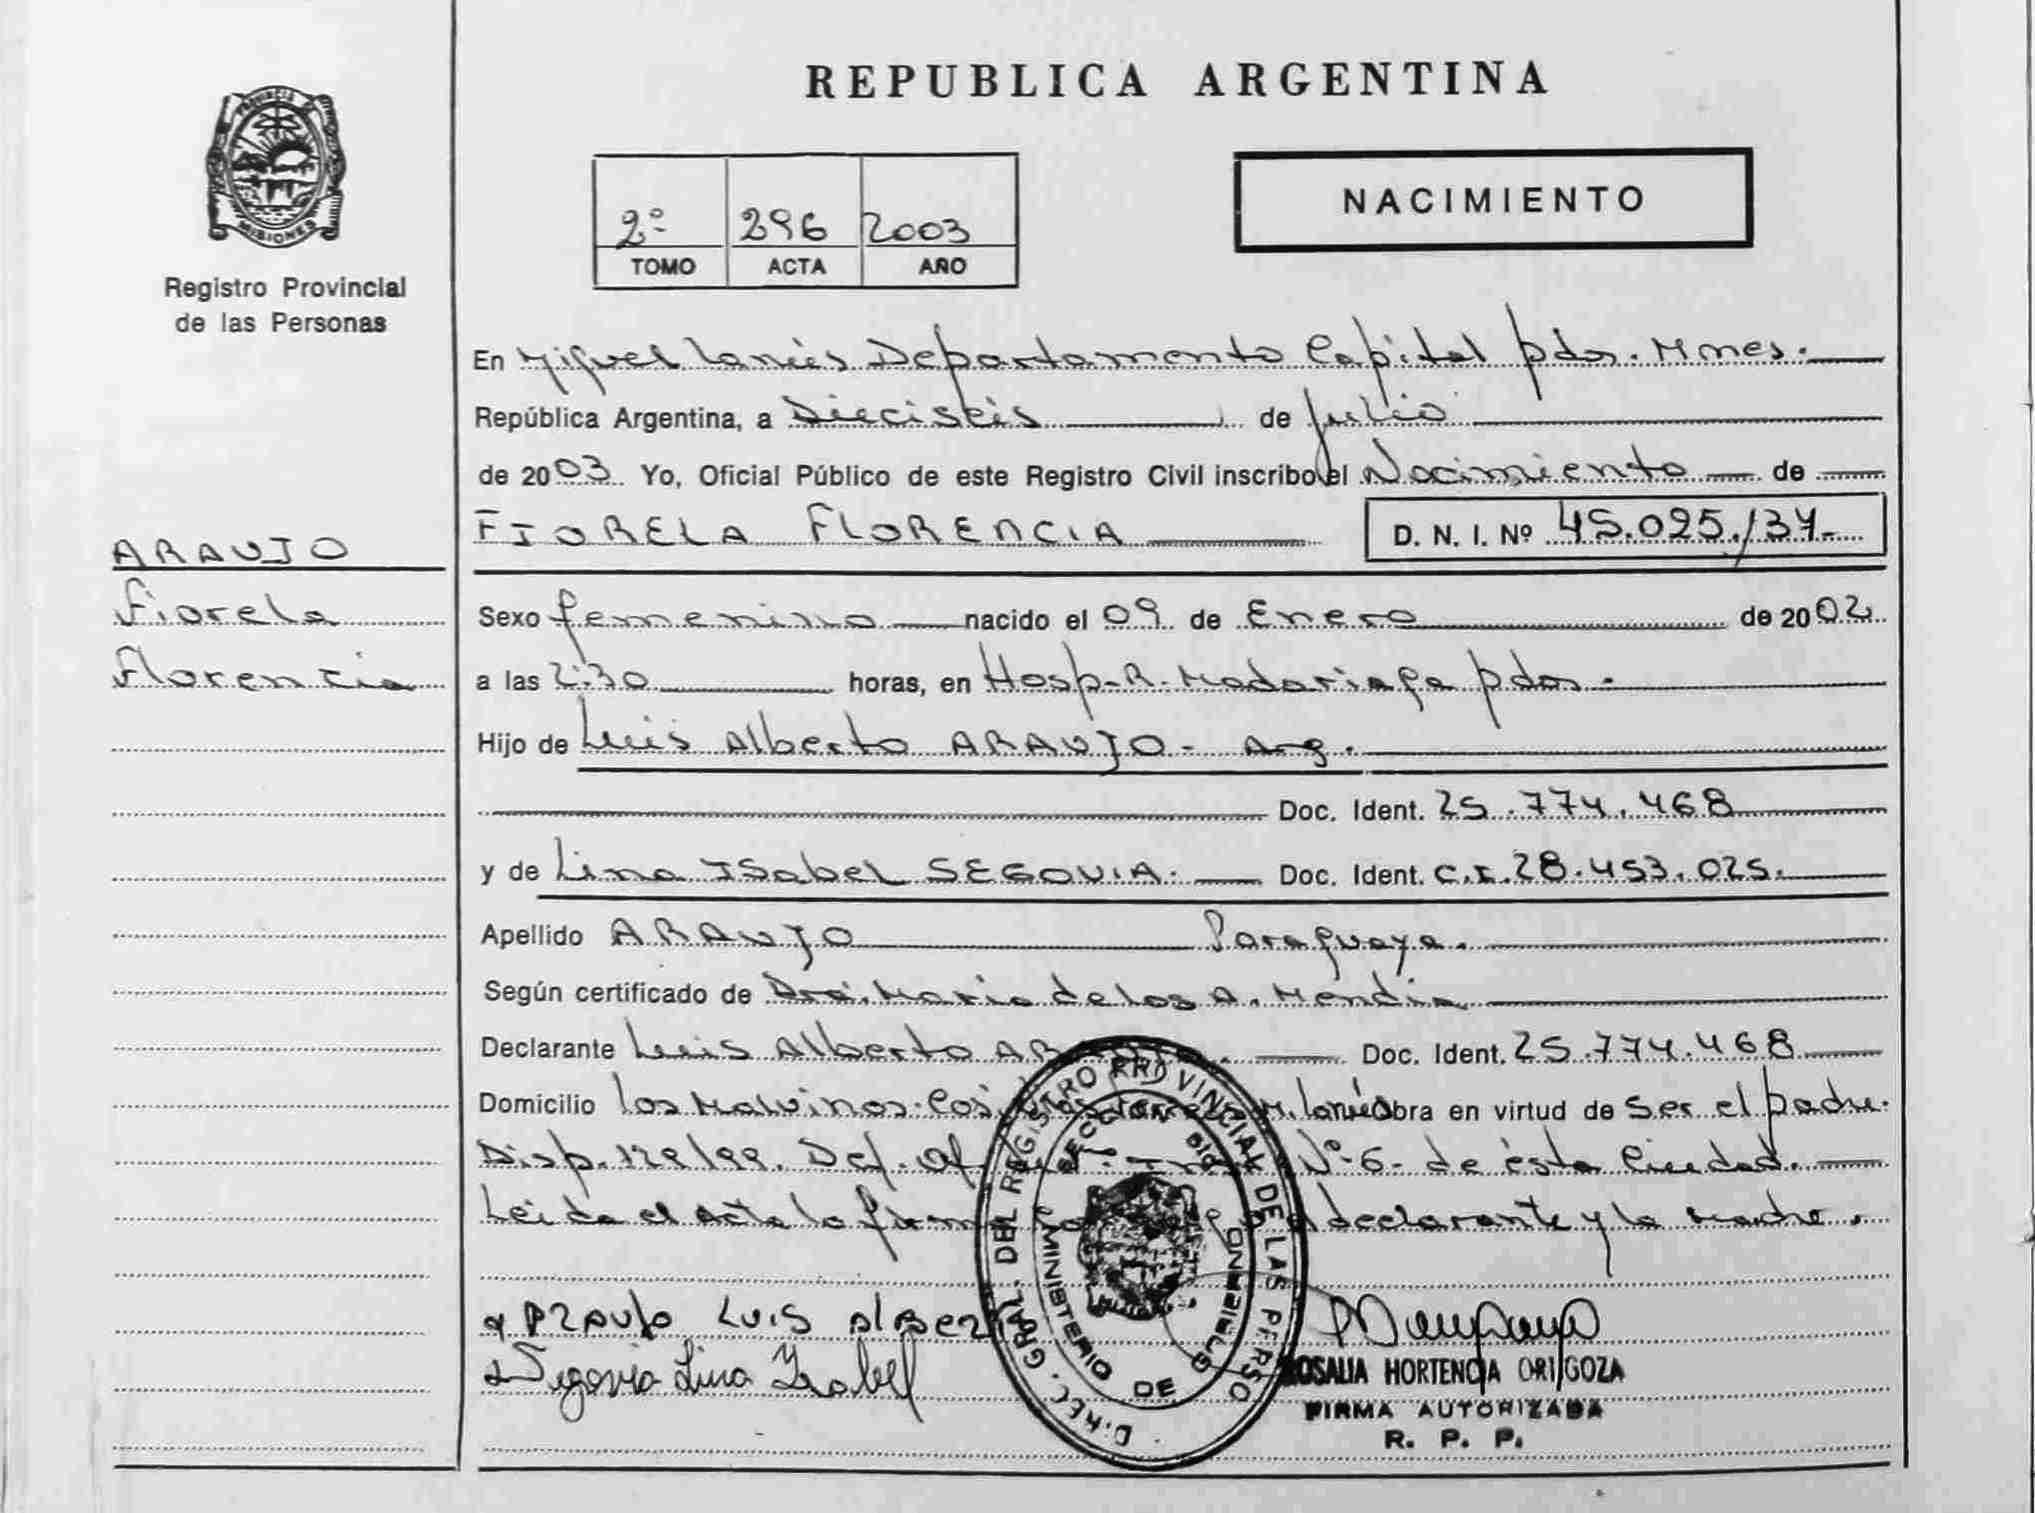 REPUBLICA ARGENTINA
PROVINCIA DE
MISIONES
Registro Provincial
de las Personas
2º 296 2003
TOMO ACTA AÑO
NACIMIENTO
En Miguel Lanús Departamento Capital pdas. Mnes.
República Argentina, a Dieciseis de Julio
de 2003 Yo, Oficial Público de este Registro Civil inscribo el Nacimiento de
FIORELA FLORENCIA D. N. I. Nº 45.025.137.-
ARAUJO
Fiorela
Florencia
Sexo femenino nacido el 09 de Enero de 2002
a las 2:30 horas, en Hosp. R. Madariaga pdas.
Hijo de Luis Alberto ARAUJO - Arg.
Doc. Ident. 25.774.468
y de Lina ISabel SEGOVIA. Doc. Ident. C.I. 28.453.025.
Apellido ARAUJO Paraguaya.
Según certificado de Dra. Maria de los A. Mendia
Declarante Luis Alberto Doc. Ident. 25.774.468
Domicilio Las Malvinas M. Lanús obra en virtud de Ser el padre.
Disp. 129/99. Def. Of. Nº 6 - de ésta Ciudad.
Leida el Acta la declarante y la Madre.
ARAUJO LUIS
Segovia Lina Isabel
DIREC. GRAL. DEL REGISTRO PROVINCIAL DE LAS PERSO
MINISTERIO DE GOBIERNO
ROSALIA HORTENCIA ORIGOZA
FIRMA AUTORIZADA
R. P. P.